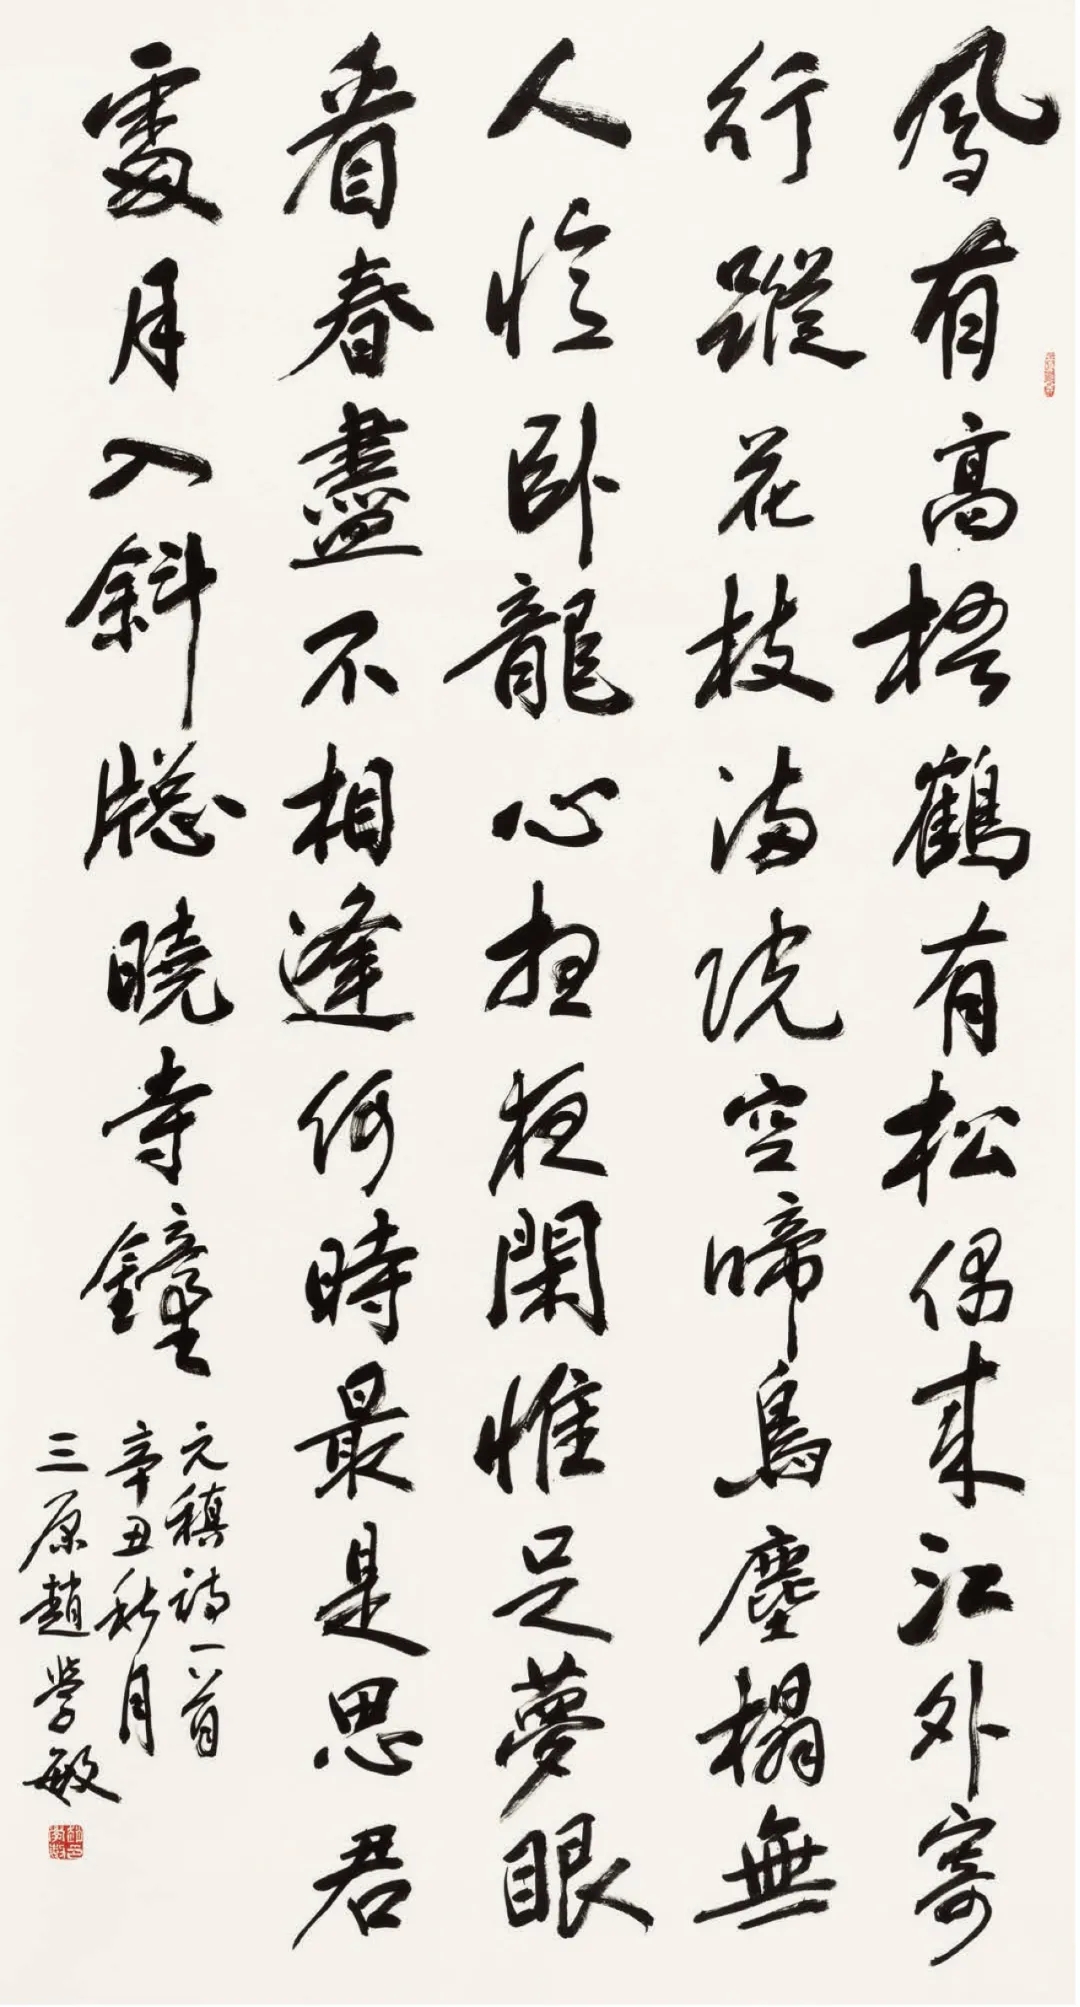 鳳有高梧鶴有松偶来江外寄
行蹤花枝满院空啼鳥塵榻無
人憶臥龍心想夜閑惟足夢眼
看春盡不相逢何時最是思君
處月入斜牕曉寺鐘
元稹詩一首
辛丑秋月
三原趙學敏